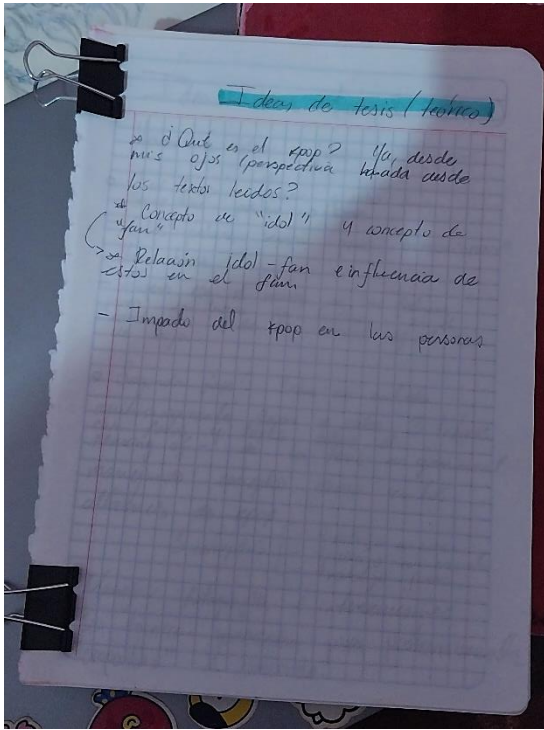 Ideas de tesis (teórico)
* ¿Qué es el kpop? Ya, desde
mis ojos (perspectiva basada desde
los textos leídos?
* Concepto de "idol" y concepto de
"fan"
* Relación idol-fan e influencia de
estos en el fan
- Impacto del kpop en las personas